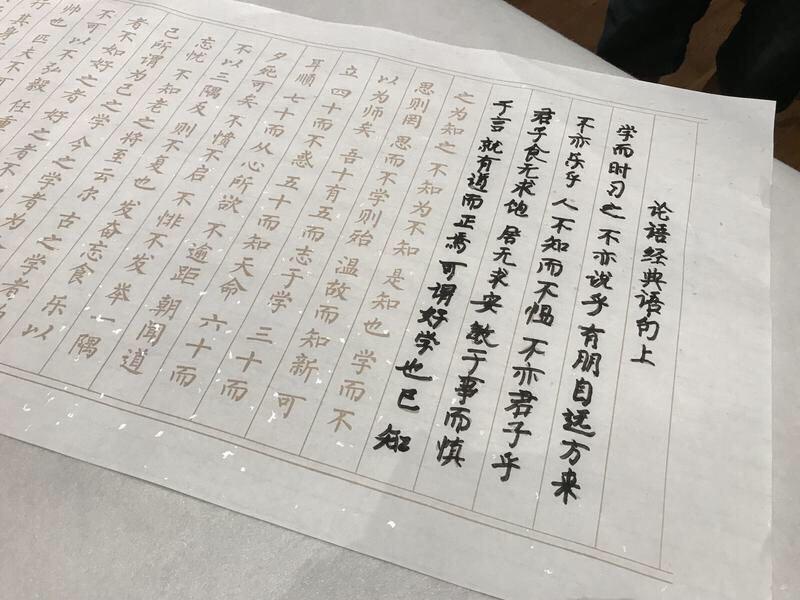 论语经典语句上
学而时习之 不亦说乎 有朋自远方来
不亦乐乎 人不知而不愠 不亦君子乎
君子食无求饱 居无求安 敏于事而慎
于言 就有道而正焉 可谓好学也已 知
之为知之 不知为不知 是知也 学而不
思则罔 思而不学则殆 温故而知新 可
以为师矣 吾十有五而志于学 三十而
立 四十而不惑 五十而知天命 六十而
耳顺 七十而从心所欲 不逾距 朝闻道
夕死可矣 不愤不启 不悱不发 举一隅
不以三隅反 则不复也 发奋忘食 乐以
忘忧 不知老之将至云尔 古之学者为
己 今之学者为
者不如好之者 好之者不
不可以不弘毅 任重
帅也 匹夫不可
行 其身